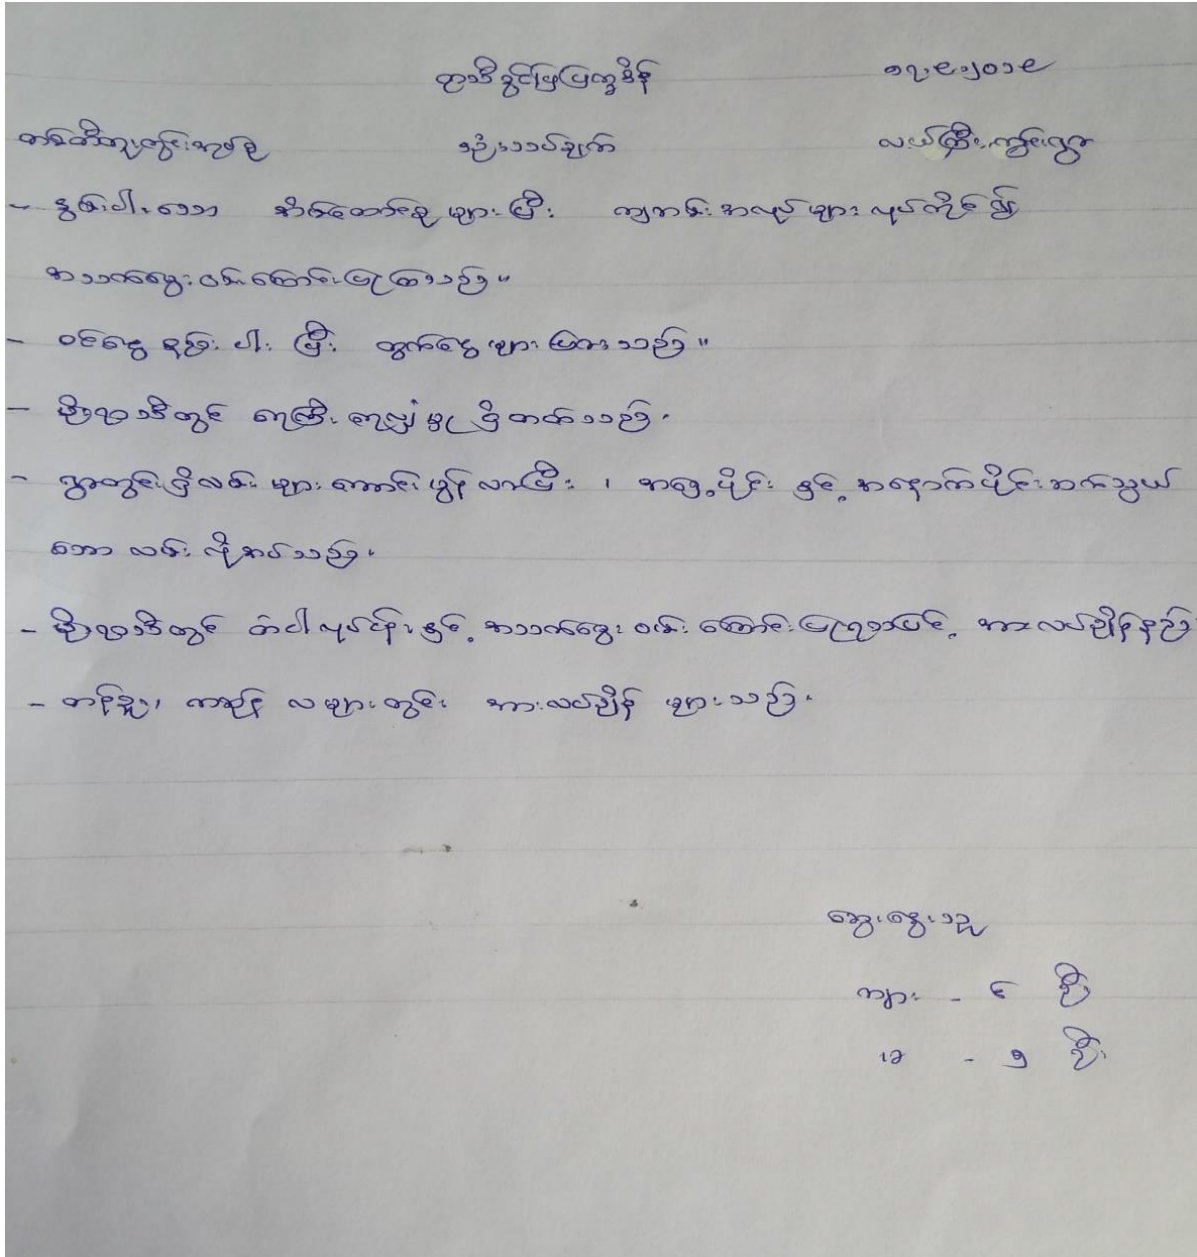 ရာသီခွင်ပြပြက္ခဒိန် ၁၇.၉.၂၀၁၉
သုံးသပ်ချက် လယ်ကြီးကွင်းရွာ
- နွမ်းပါးသော အိမ်ထောင်စုများပြီး ကျဘမ်းအလုပ်များ လုပ်ကိုင်၍
အသက်မွေးဝမ်းကြောင်းပြုကြသည်။
- ဝင်ငွေနည်းပါးပြီး ထွက်ငွေများပြားသည်။
- မိုးရာသီတွင် ရေကြီးရေလျှံမှုရှိတတ်သည်။
- ရွာတွင်းရှိလမ်းများကောင်းမွန်လာပြီး၊ အရှေ့ပိုင်းနှင့်အနောက်ပိုင်းဆက်သွယ်
သောလမ်းလိုအပ်သည်။
- မိုးရာသီတွင် တံငါလုပ်ငန်းနှင့်အသက်မွေးဝမ်းကြောင်းပြုရသဖြင့် အားလပ်ချိန်နည်း
- တန်ခူး၊ ကဆုန်လများတွင်း အားလပ်ချိန်များသည်။
ဆွေးနွေးသူ
ကျား - ၆ ဦး
မ - ၅ ဦး